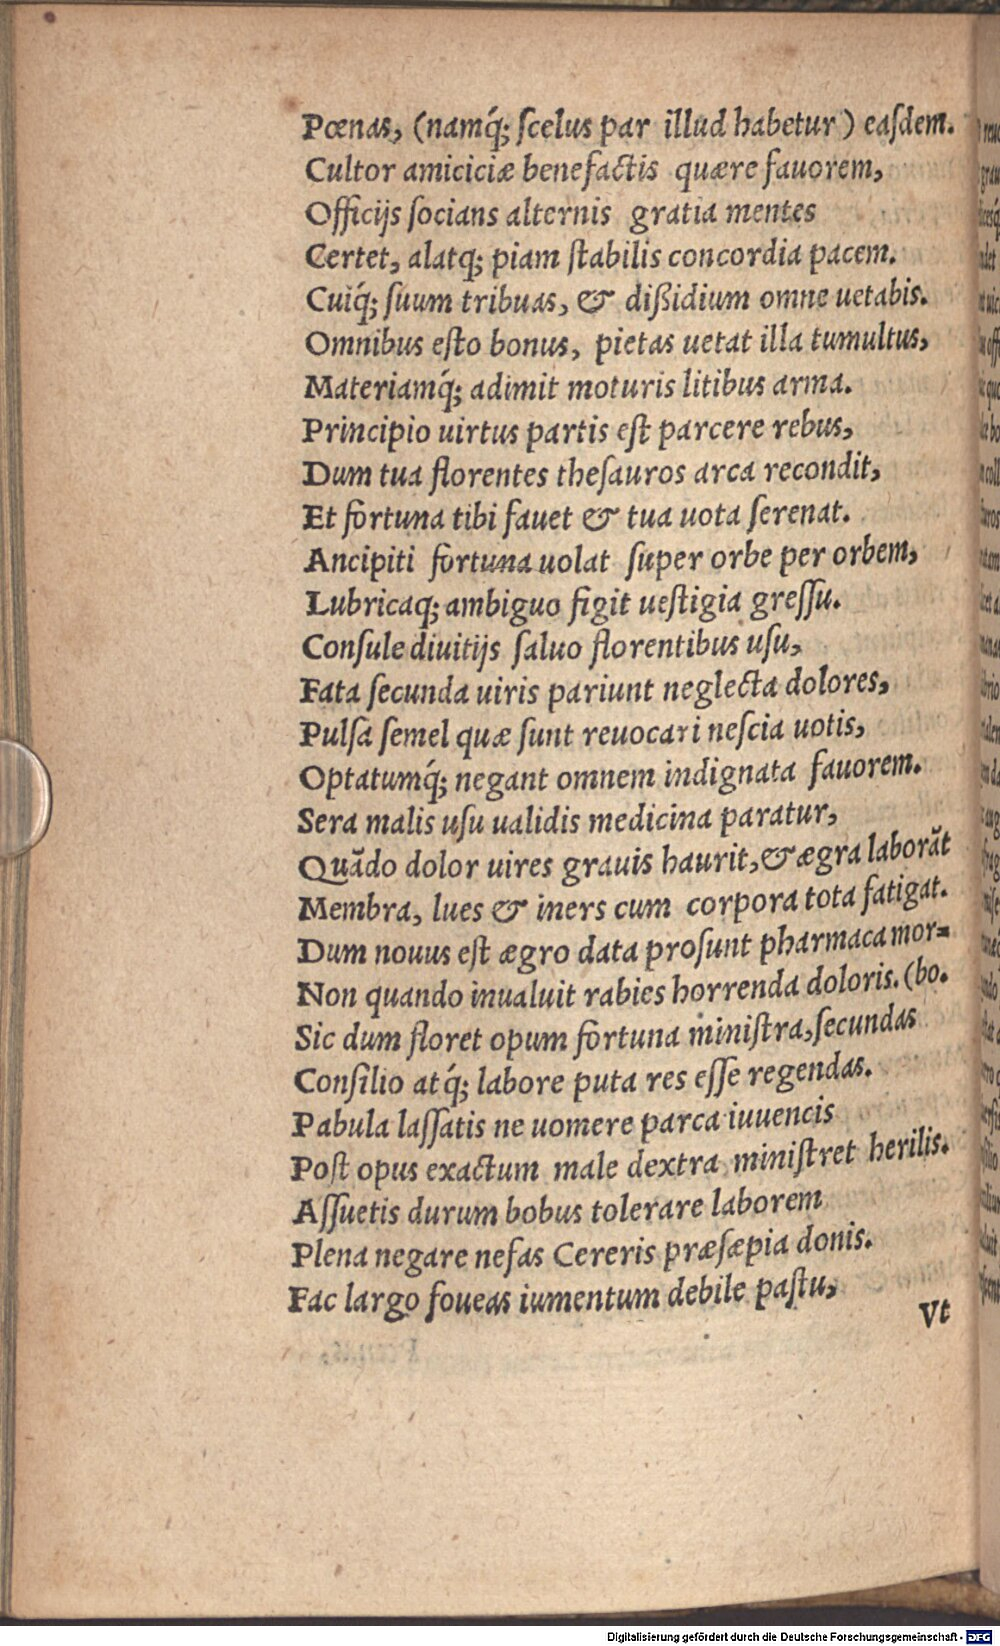 Pœnas, (namq́; ſcelus par illud habetur) eaſdem.
Cultor amiciciæ benefactis quære fauorem,
Officijs ſocians alternis gratia mentes
Certet, alatq; piam ſtabilis concordia pacem.
Cuiq́; ſuum tribuas, & dißidium omne uetabis.
Omnibus eſto bonus, pietas uetat illa tumultus,
Materiamq́; adimit moturis litibus arma.
Principio uirtus partis eſt parcere rebus,
Dum tua florentes theſauros arca recondit,
Et fortuna tibi fauet & tua uota ſerenat.
Ancipiti fortuna uolat ſuper orbe per orbem,
Lubricaq; ambiguo figit ueſtigia greſſu.
Conſule diuitijs ſaluo florentibus uſu,
Fata ſecunda uiris pariunt neglecta dolores,
Pulſa ſemel quæ ſunt reuocari neſcia uotis,
Optatumq́; negant omnem indignata fauorem.
Sera malis uſu ualidis medicina paratur,
Quãdo dolor uires grauis haurit, & ægra laborãt
Membra, lues & iners cum corpora tota fatigat.
Dum nouus eſt ægro data proſunt pharmaca mor=
Non quando inualuit rabies horrenda doloris. (bo.
Sic dum floret opum fortuna miniſtra, ſecundas
Conſilio atq́; labore puta res eſſe regendas.
Pabula laſſatis ne uomere parca iuuencis
Poſt opus exactum male dextra miniſtret herilis.
Aſſuetis durum bobus tolerare laborem
Plena negare nefas Cereris præſæpia donis.
Fac largo foueas iumentum debile paſtu,
Vt
Digitalisierung gefördert durch die Deutsche Forschungsgemeinschaft - DFG